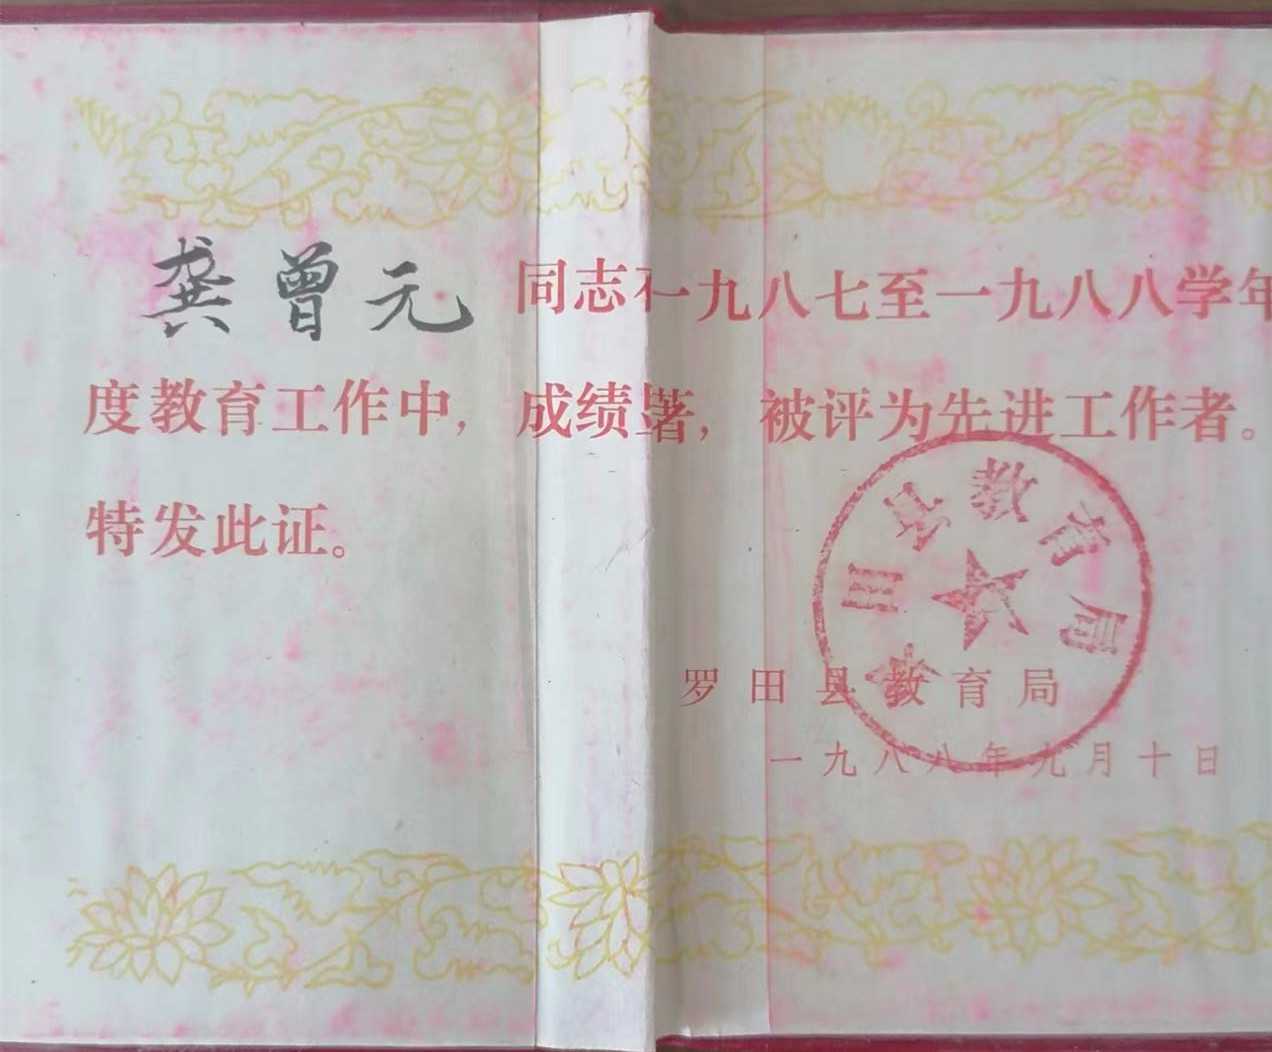 龚曾元 同志在一九八七至一九八八学年
度教育工作中，成绩显著，被评为先进工作者。
特发此证。
田县教育局
罗田县教育局
一九八八年九月十日